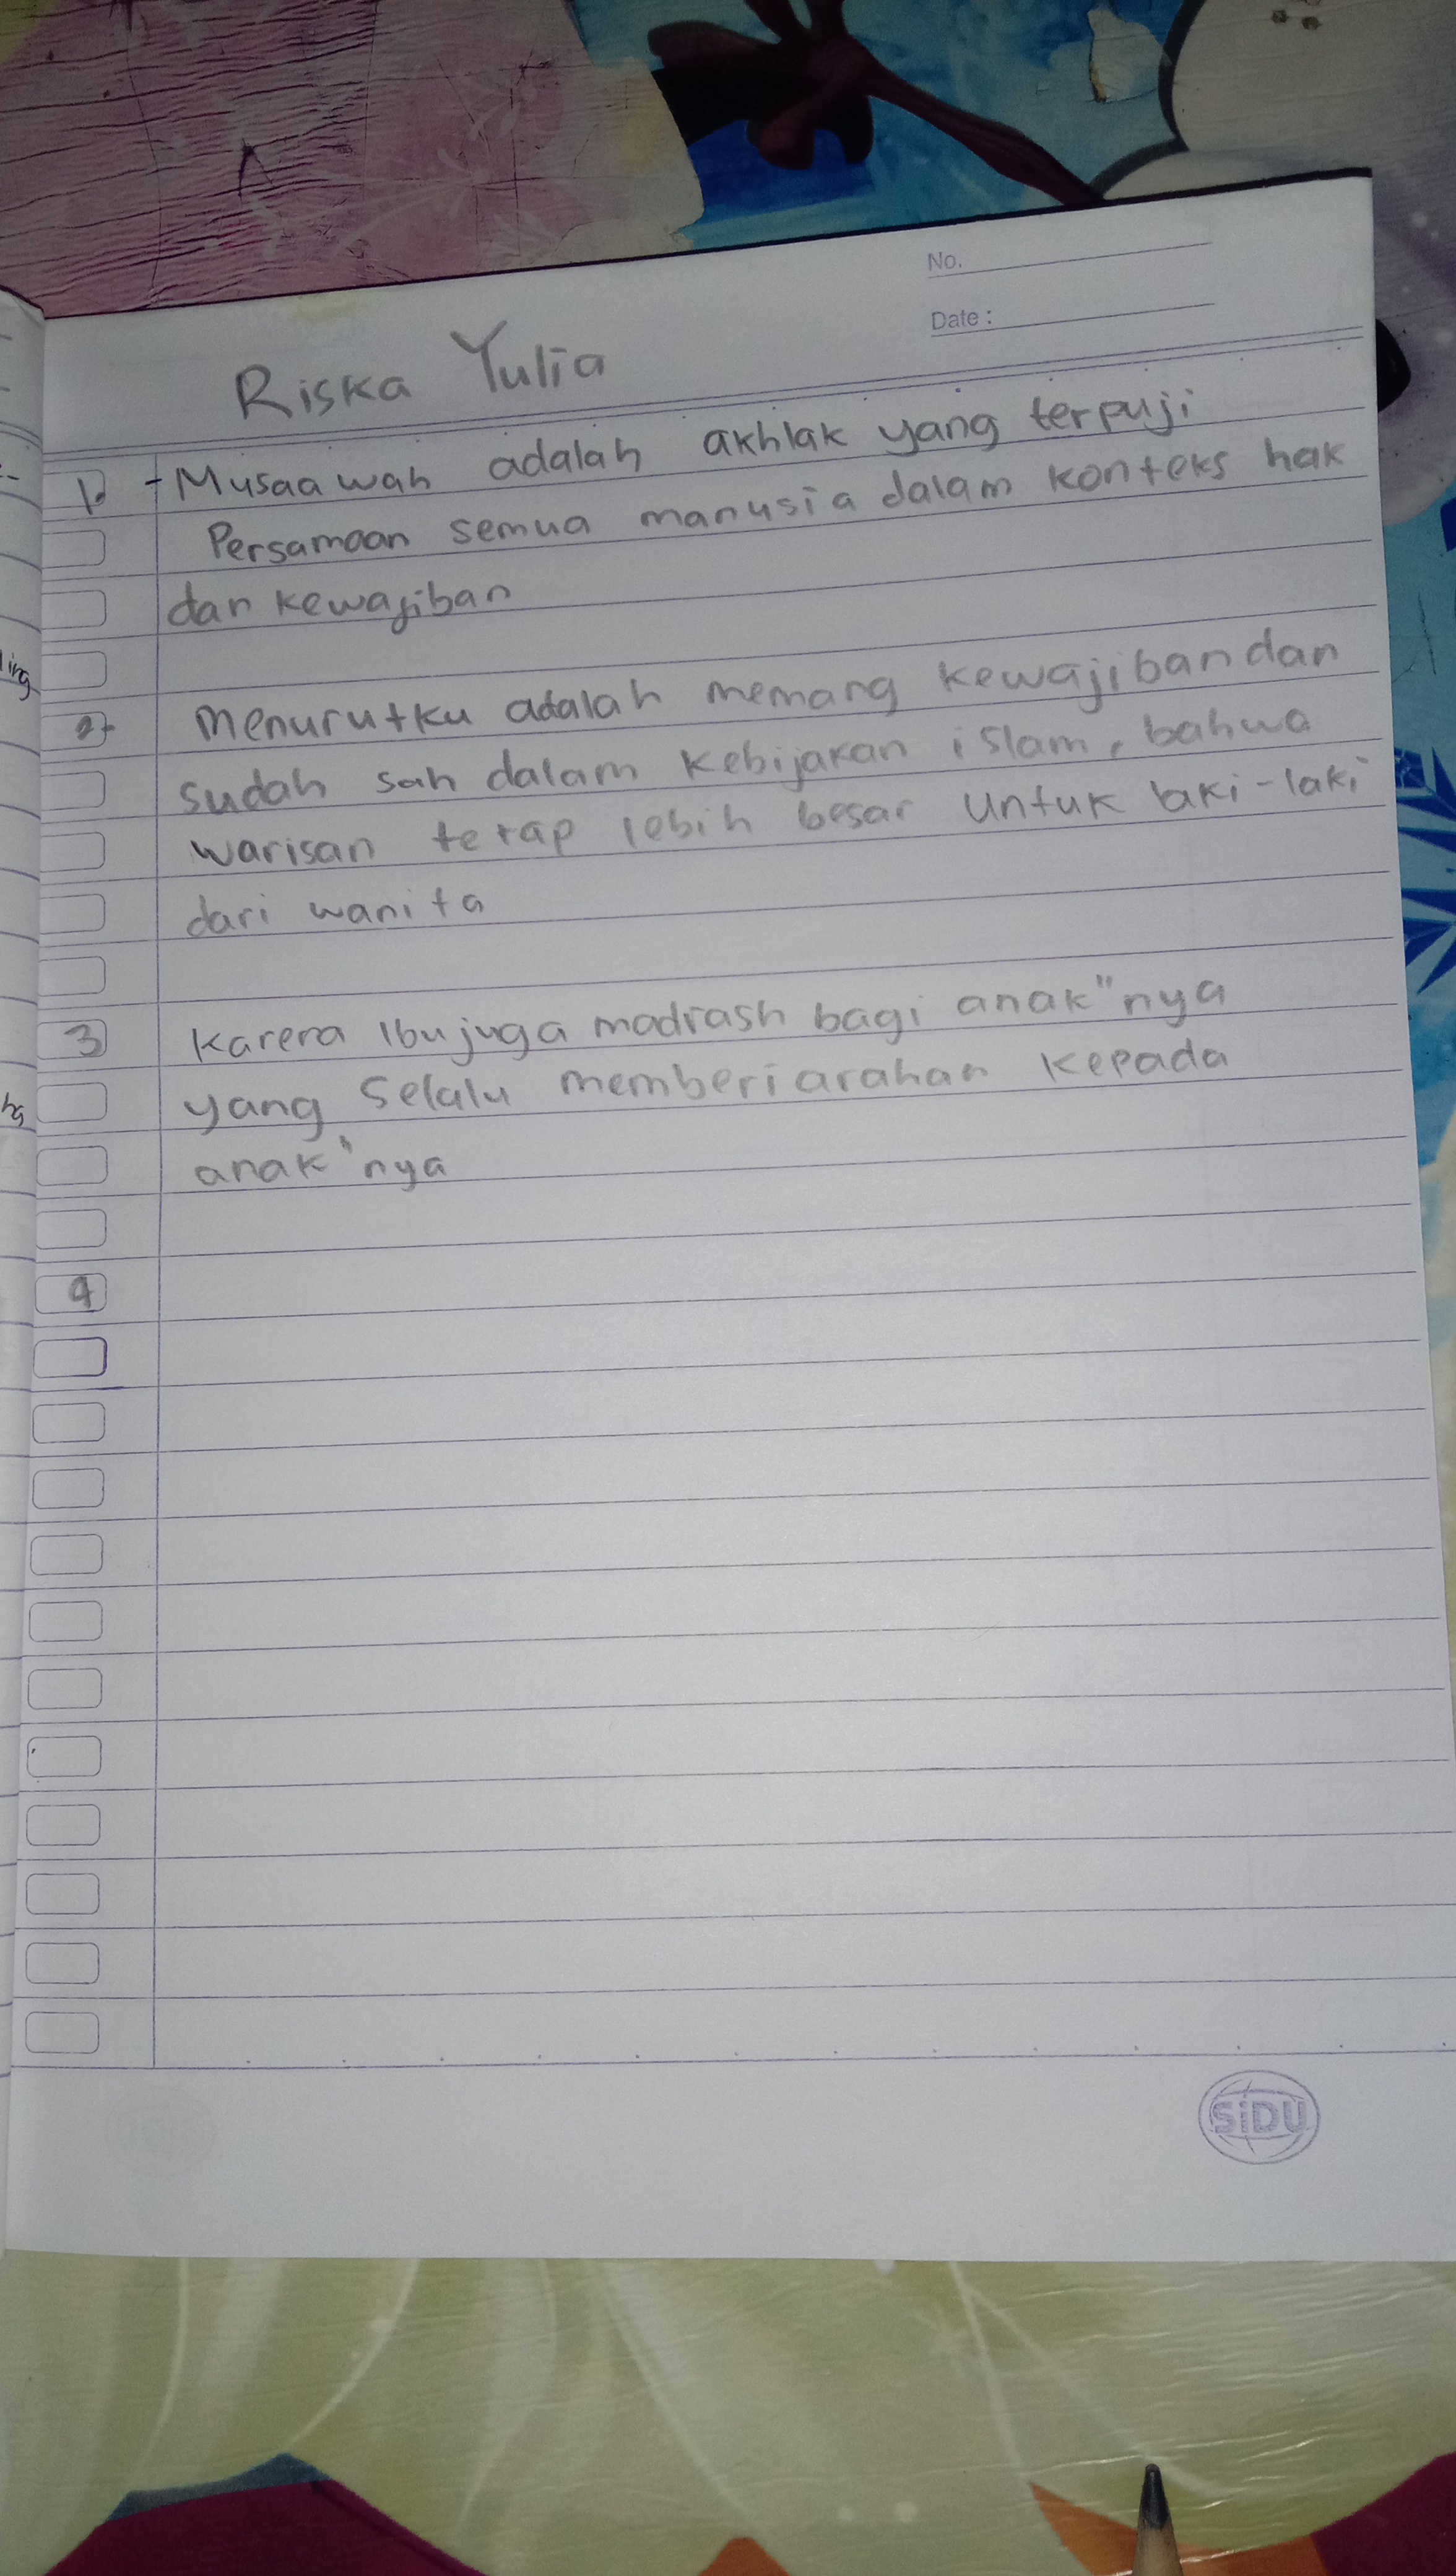 No.
Date :
Riska Yulia
1. - Musaawah adalah akhlak yang terpuji
Persamaan semua manusia dalam konteks hak
dan kewajiban
2. menurutku adalah memang kewajiban dan
sudah sah dalam kebijakan islam, bahwa
warisan tetap lebih besar untuk laki-laki
dari wanita
3 karena ibu juga madrash bagi anak"nya
yang selalu memberi arahan kepada
anak"nya
4
ing
ng
SiDU